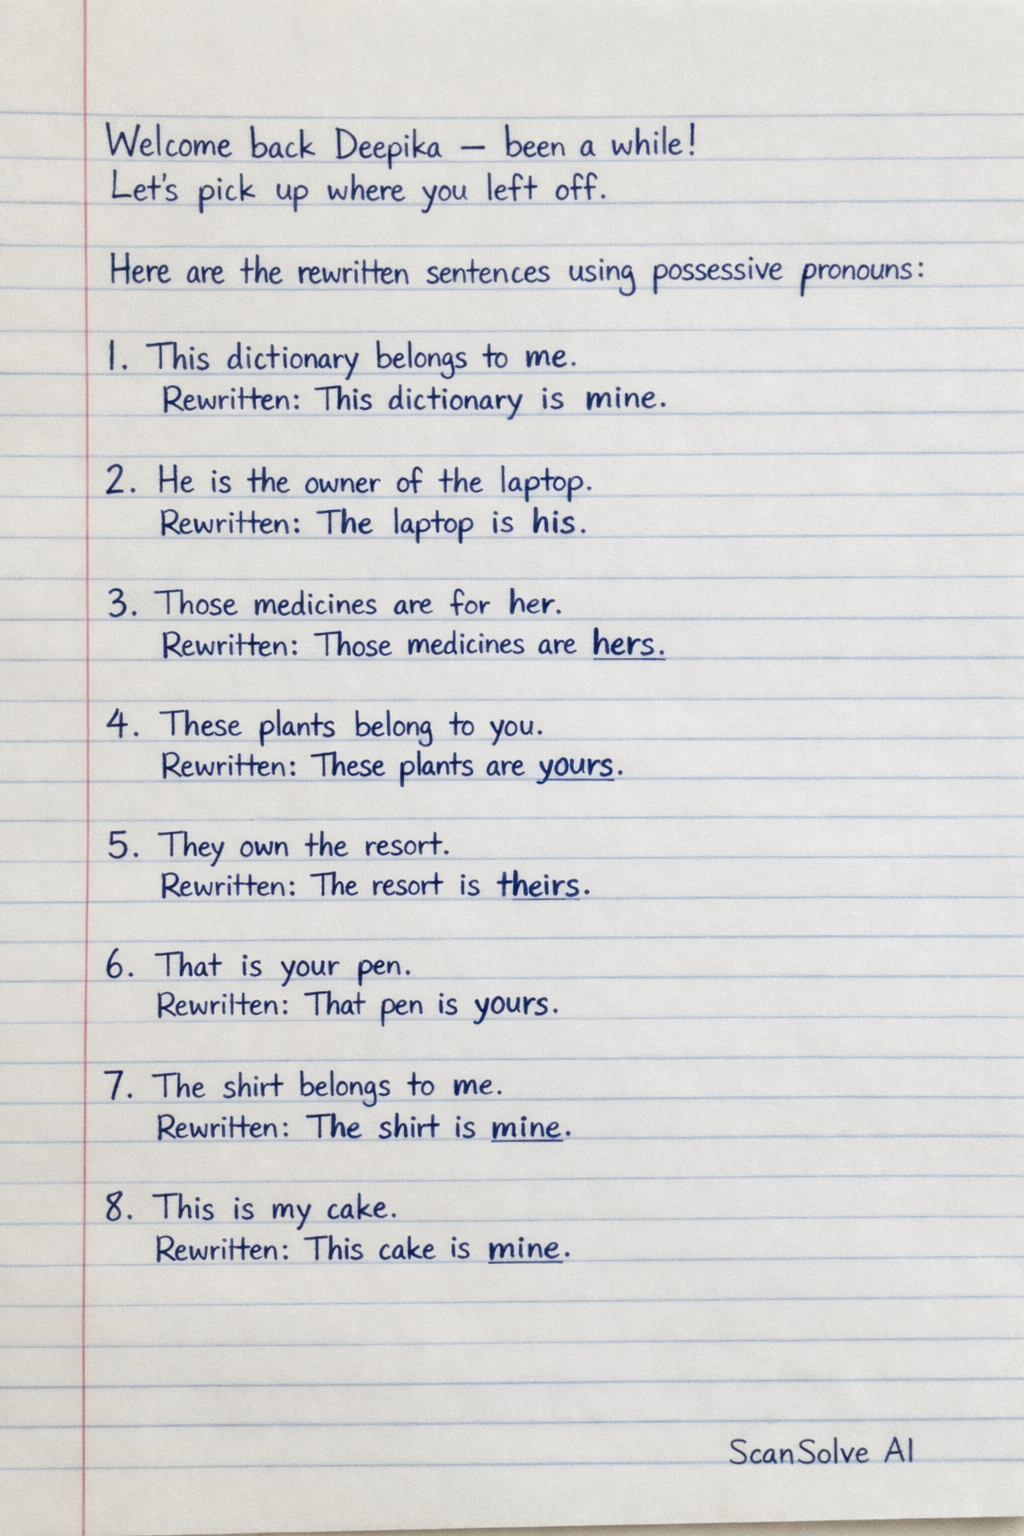 Welcome back Deepika — been a while!
Let's pick up where you left off.
Here are the rewritten sentences using possessive pronouns:
1. This dictionary belongs to me.
Rewritten: This dictionary is mine.
2. He is the owner of the laptop.
Rewritten: The laptop is his.
3. Those medicines are for her.
Rewritten: Those medicines are hers.
4. These plants belong to you.
Rewritten: These plants are yours.
5. They own the resort.
Rewritten: The resort is theirs.
6. That is your pen.
Rewritten: That pen is yours.
7. The shirt belongs to me.
Rewritten: The shirt is mine.
8. This is my cake.
Rewritten: This cake is mine.
ScanSolve AI